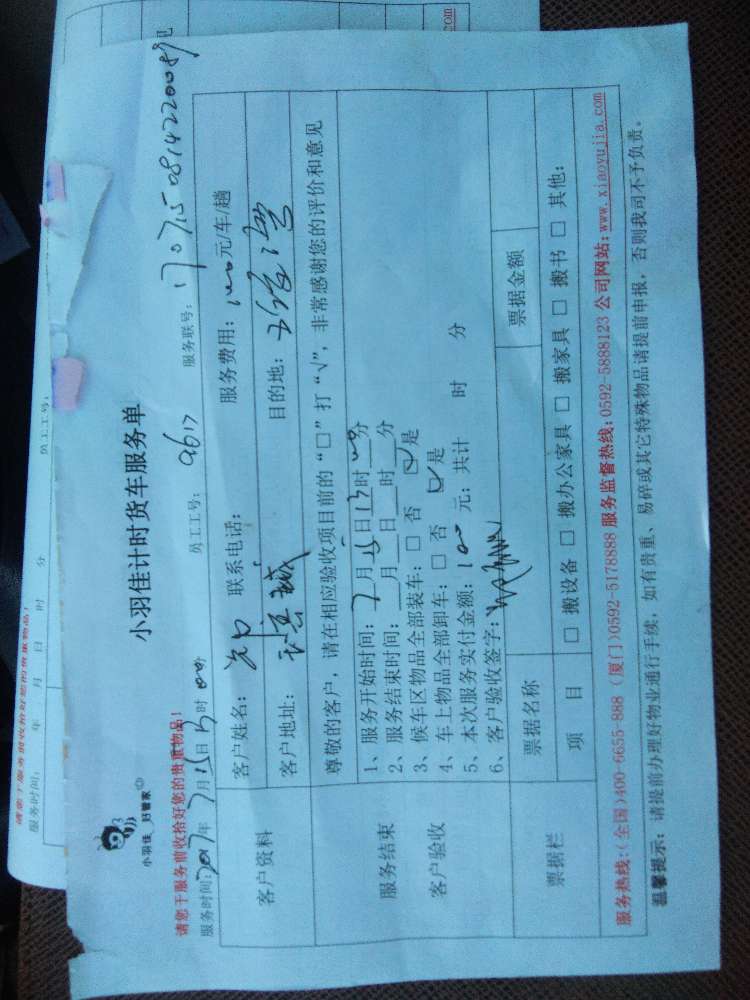 小羽佳计时货车服务单
小羽佳 好管家
请您于服务前收拾好您的贵重物品！
服务时间：2017年7月15日13时00 员工工号：9617 服务联号：1707150814220089
客户资料
客户姓名： 联系电话： 服务费用：100元/车/趟
客户地址： 目的地：
服务结束
客户验收
尊敬的客户，请在相应验收项目前的“□”打“√”，非常感谢您的评价和意见
1、服务开始时间：7月15日13时00分
2、服务结束时间：___月___日___时___分
3、候车区物品全部装车：□ 否 ☑是
4、车上物品全部卸车：□ 否 ☑是
5、本次服务实付金额：100元；共计 时 分
6、客户验收签字：
票据栏
票据名称 票据金额
项 目 □ 搬设备 □ 搬办公家具 □ 搬家具 □ 搬书 □ 其他：
服务热线：（全国）400-6655-888（厦门）0592-5178888 服务监督热线：0592-5888123 公司网站：www.xiaoyujia.com
温馨提示：请提前办理好物业通行手续，如有贵重、易碎或其它特殊物品请提前申报，否则我司不予负责。
请您于服务前收拾好您的贵重物品！
服务时间： 年 月 日 时 分 员工工号：
com